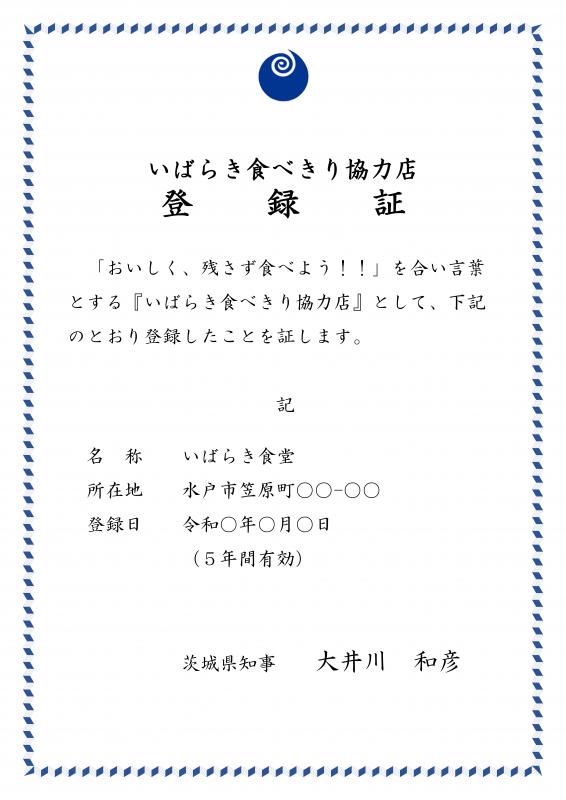 いばらき食べきり協力店
登　録　証
「おいしく、残さず食べよう！！」を合い言葉
とする『いばらき食べきり協力店』として、下記
のとおり登録したことを証します。
記
名　称　いばらき食堂
所在地　水戸市笠原町〇〇−〇〇
登録日　令和〇年〇月〇日
（５年間有効）
茨城県知事　大井川　和彦